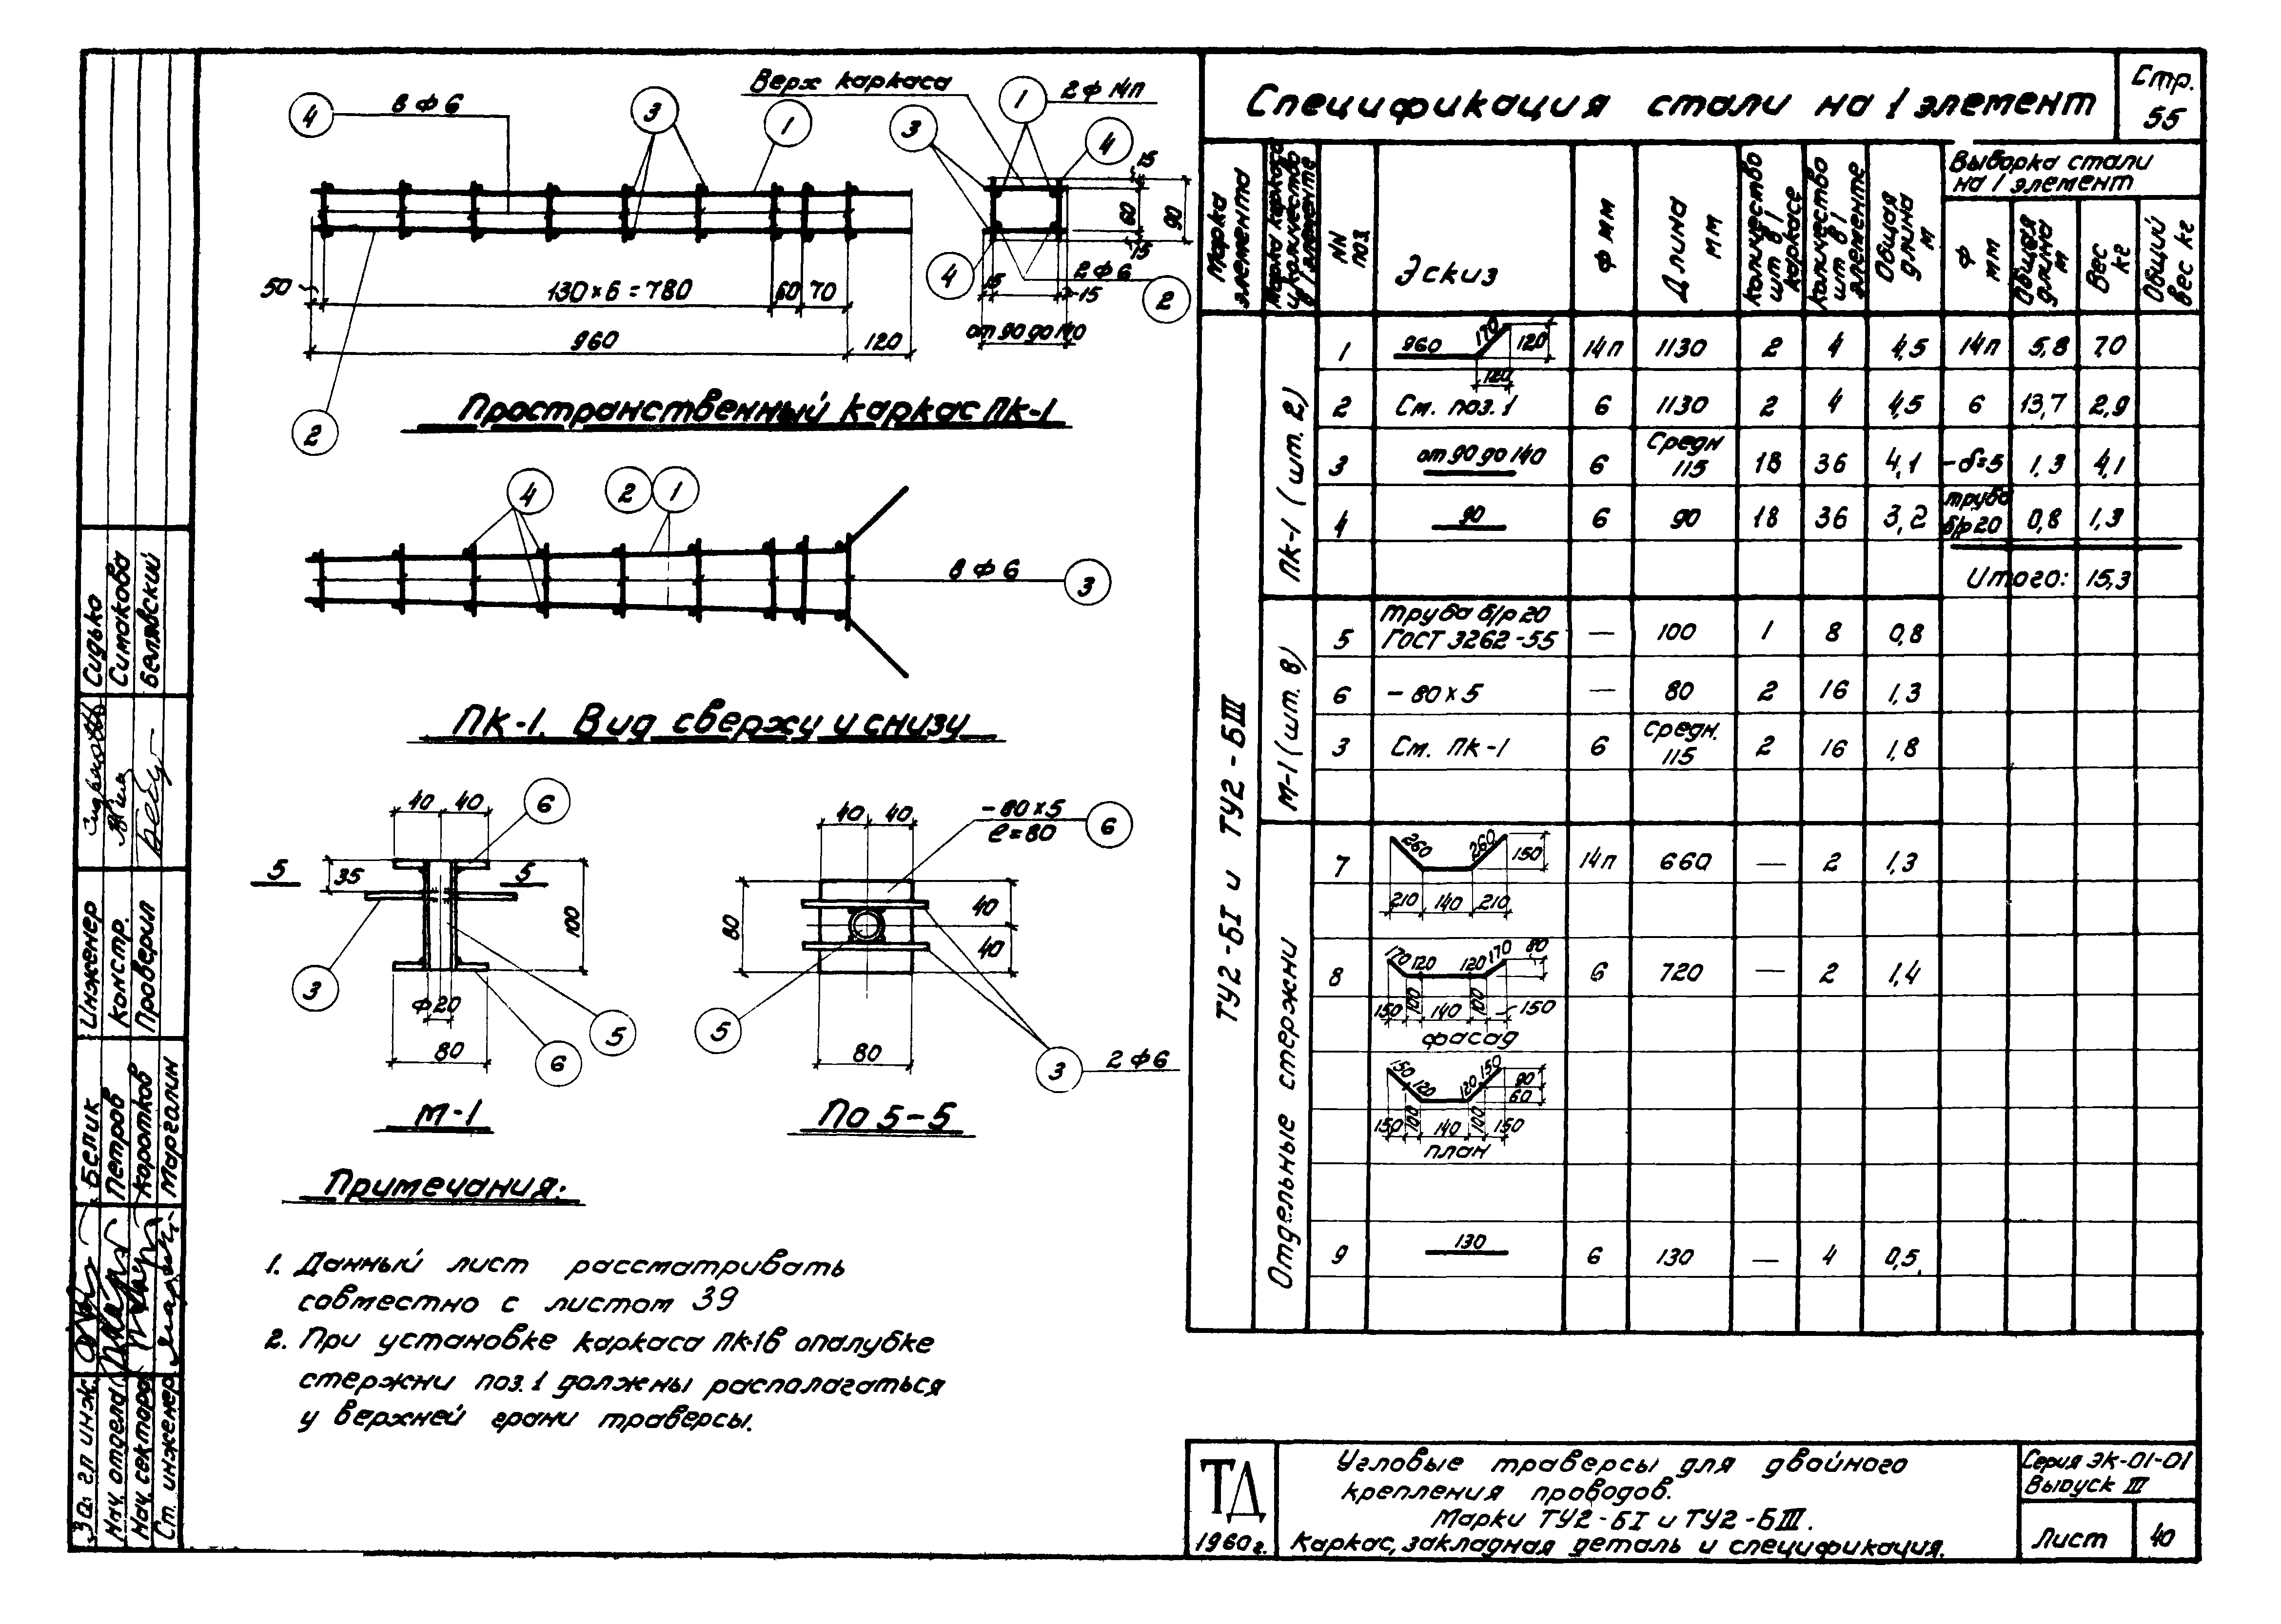 Верх каркаса
4
8 ф 6
3
1
3
1
2 ф 14п
4
15
60
90
15
4
2 ф 6
2
15
15
от 90 до 140
50
130 × 6 = 780
60
70
960
120
2
Пространственный каркас ПК-1
4
2
1
8 ф 6
3
ПК-1. Вид сверху и снизу
40
40
6
5
5
35
100
3
ф 20
80
5
6
М-1
40
40
- 80 × 5
ℓ = 80
6
80
40
40
5
80
3
2 ф 6
По 5-5
Примечания:
1. Данный лист рассматривать
совместно с листом 39
2. При установке каркаса ПК-1 в опалубке
стержни поз. 1 должны располагаться
у верхней грани траверсы.
Спецификация стали на 1 элемент
Стр.
55
Марка элемента
Марка каркаса и количество в 1 элементе
NN поз.
Эскиз
ф мм
Длина мм
Количество шт в 1 каркасе
Количество шт в 1 элементе
Общая длина м
Выборка стали
на 1 элемент
ф мм
Общая длина м
Вес кг
Общий вес кг
ТУ2-БI и ТУ2-БIII
ПК-1 (шт. 2)
1 960 170 120 120 14п 1130 2 4 4,5 14п 5,8 7,0
2 См. поз. 1 6 1130 2 4 4,5 6 13,7 2,9
3 от 90 до 140 6 Средн 115 18 36 4,1 -δ=5 1,3 4,1
4 90 6 90 18 36 3,2 труба б/р 20 0,8 1,3
Итого: 15,3
М-1 (шт. 8)
5 труба б/р 20 ГОСТ 3262-55 — 100 1 8 0,8
6 - 80 × 5 — 80 2 16 1,3
3 См. ПК-1 6 Средн. 115 2 16 1,8
Отдельные стержни
7 260 260 150 14п 660 — 2 1,3
210 140 210
8 170 120 120 170 80 6 720 — 2 1,4
150 100 140 100 150
фасад
150 120 120 150 90 60
150 100 140 100 150
план
9 130 6 130 — 4 0,5
Сидько
Симакова
Белявский
Инженер
Констр.
Проверил
Белик
Петров
Коротков
Маргалин
За. гл инж.
Нач. отдела
Нач. сектора
Ст. инженер
ТД
1960г.
Угловые траверсы для двойного
крепления проводов.
Марки ТУ2-БI и ТУ2-БIII.
Каркас, закладная деталь и спецификация.
Серия ЭК-01-01
Выпуск III
Лист
40